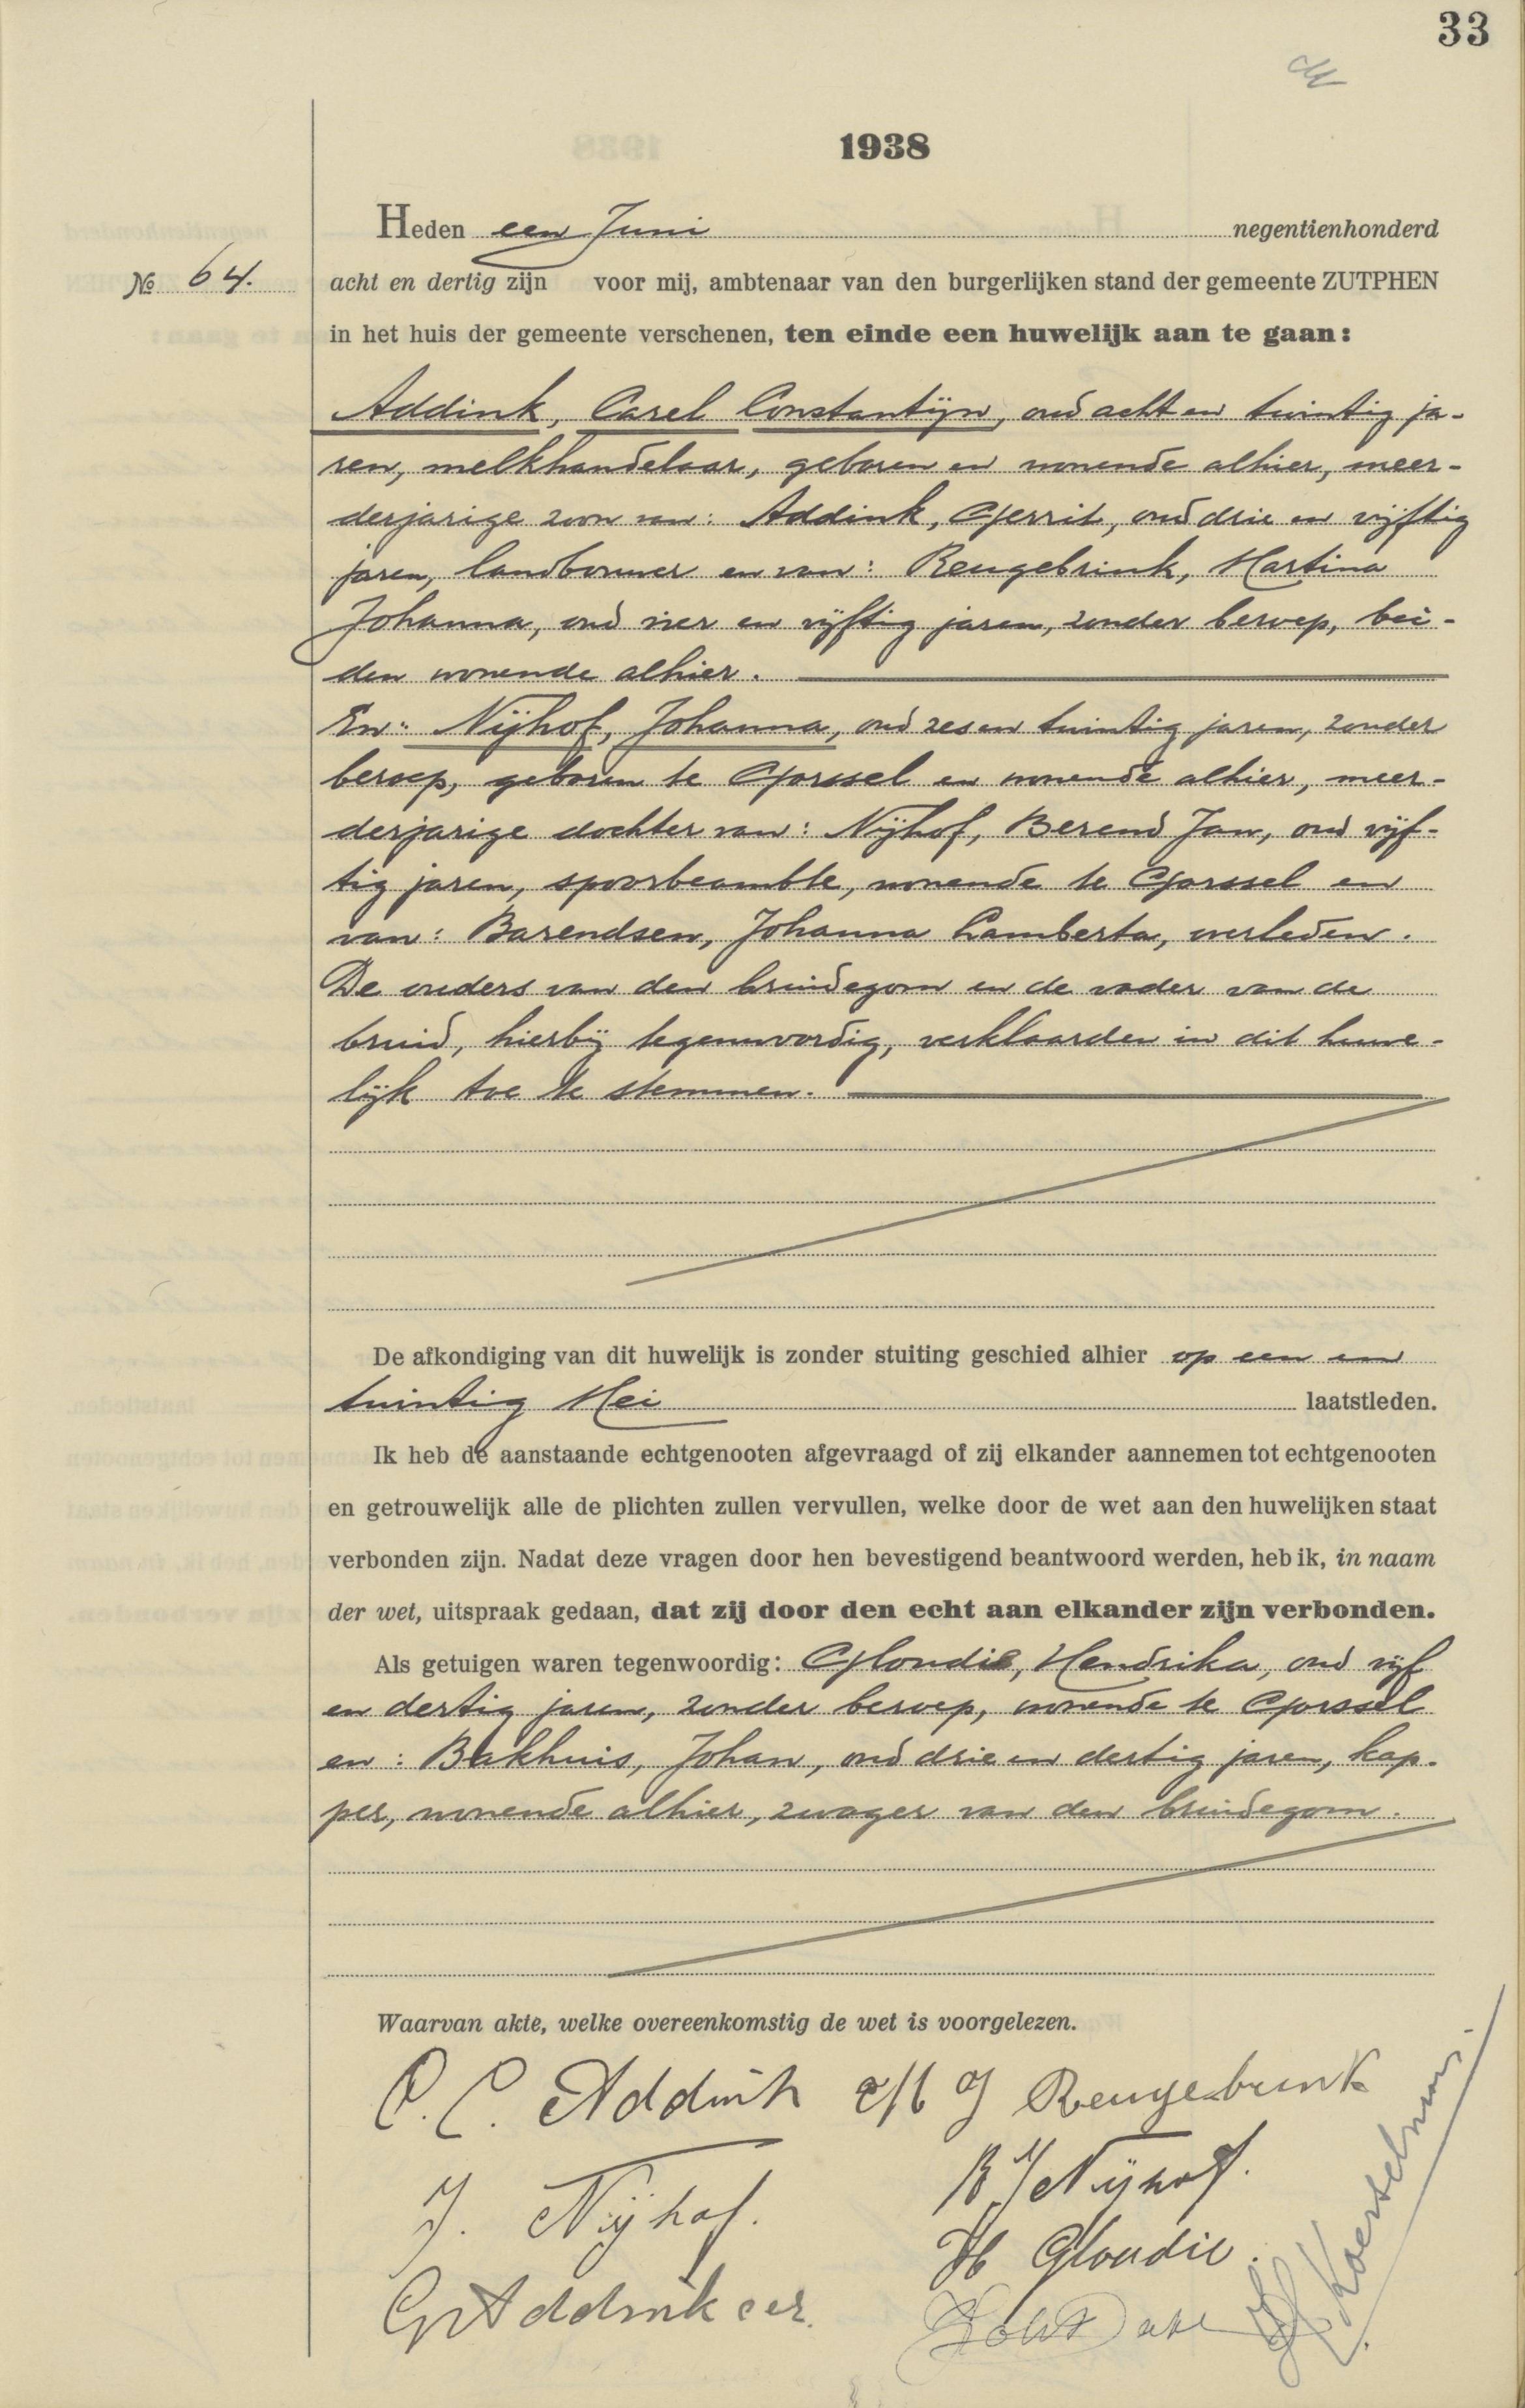 33
1938
Heden een Juni negentienhonderd
No 64.
acht en dertig zijn voor mij, ambtenaar van den burgerlijken stand der gemeente ZUTPHEN
in het huis der gemeente verschenen, ten einde een huwelijk aan te gaan:
Addink, Carel Constantijn, oud acht en twintig ja-
ren, melkhandelaar, geboren en wonende alhier, meer-
derjarige zoon van: Addink, Gerrit, oud drie en vijftig
jaren, landbouwer en van: Reugebrink, Martina
Johanna, oud vier en vijftig jaren, zonder beroep, bei-
den wonende alhier.
En: Nijhof, Johanna, oud zes en twintig jaren, zonder
beroep, geboren te Gorssel en wonende alhier, meer-
derjarige dochter van: Nijhof, Berend Jan, oud vijf-
tig jaren, spoorbeambte, wonende te Gorssel en
van: Barendsen, Johanna Lamberta, overleden.
De ouders van den bruidegom en de vader van de
bruid, hierbij tegenwoordig, verklaarden in dit huwe-
lijk toe te stemmen.
De afkondiging van dit huwelijk is zonder stuiting geschied alhier op een en
twintig Mei laatstleden.
Ik heb de aanstaande echtgenooten afgevraagd of zij elkander aannemen tot echtgenooten
en getrouwelijk alle de plichten zullen vervullen, welke door de wet aan den huwelijken staat
verbonden zijn. Nadat deze vragen door hen bevestigend beantwoord werden, heb ik, in naam
der wet, uitspraak gedaan, dat zij door den echt aan elkander zijn verbonden.
Als getuigen waren tegenwoordig: Gloudie, Hendrika, oud vijf
en dertig jaren, zonder beroep, wonende te Gorssel
en: Bakhuis, Johan, oud drie en dertig jaren, kap-
per, wonende alhier, zwager van den bruidegom.
Waarvan akte, welke overeenkomstig de wet is voorgelezen.
C. C. Addink M J Reugebrink
J. Nijhof. B J Nijhof.
H Gloudie.
G Addink